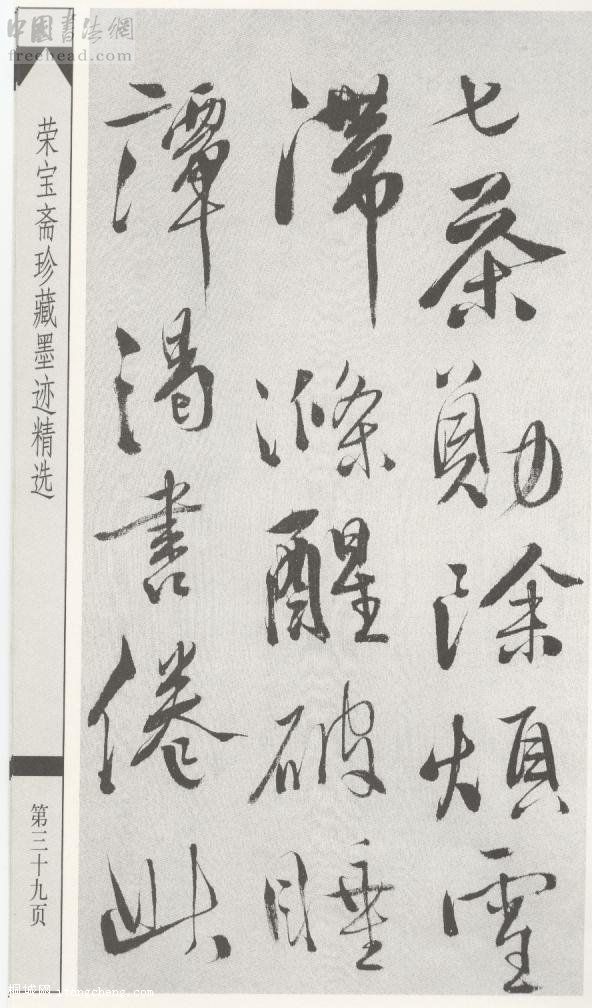 中國書法網
freehead.com
七茶勛除煩雪
滯滌醒破睡
譚渴書倦此
荣宝斋珍藏墨迹精选
第三十九页
桐城网 itongcheng.com